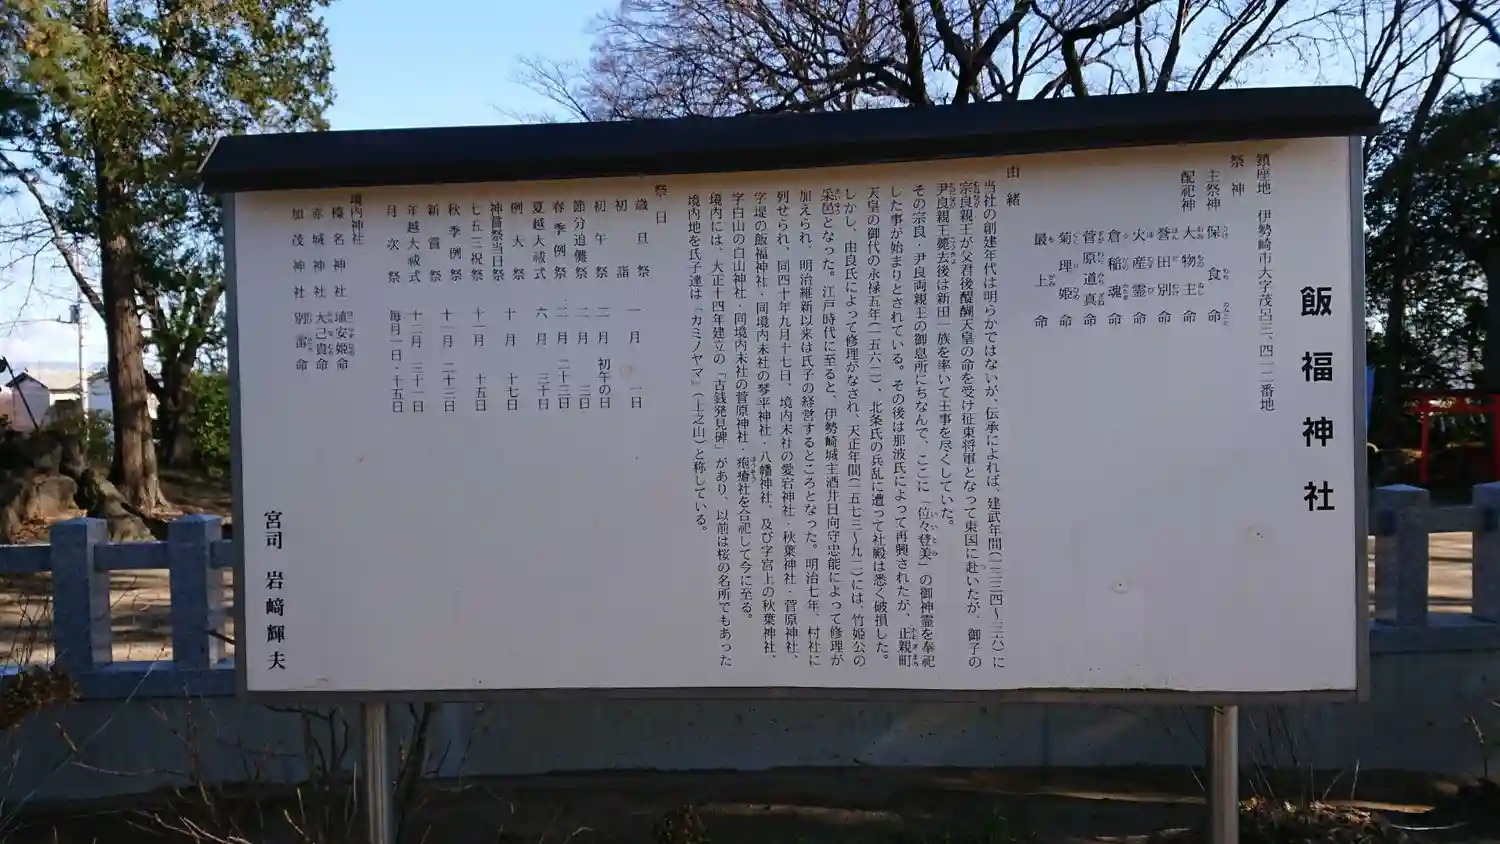 飯福神社
鎮座地 伊勢崎市大字茂呂三、四一二番地
祭神
主祭神 保食命
配祀神 大物主命
誉田別命
火産霊命
倉稲魂命
菅原道真命
菊理姫命
最上命
由緒
当社の創建年代は明らかではないが、伝承によれば、建武年間(一三三四～三六)に
宗良親王が父君後醍醐天皇の命を受け征東将軍となって東国に赴いたが、御子の
尹良親王薨去後は新田一族を率いて王事を尽くしていた。
その宗良・尹良両親王の御息所にちなんで、ここに「位々登美」の御神霊を奉祀
した事が始まりとされている。その後は那波氏によって再興されたが、正親町
天皇の御代の永禄五年(一五六二)、北条氏の兵乱に遭って社殿は悉く破損した。
しかし、由良氏によって修理がなされ、天正年間(一五七三～九二)には、竹姫公の
采邑となった。江戸時代に至ると、伊勢崎城主酒井日向守忠能によって修理が
加えられ、明治維新以来は氏子の経営するところとなった。明治七年、村社に
列せられ、同四十年九月十七日、境内末社の愛宕神社・秋葉神社・菅原神社、
字堤の飯福神社、同境内末社の琴平神社・八幡神社、及び字宮上の秋葉神社、
字白山の白山神社、同境内末社の菅原神社、疱瘡社を合祀して今に至る。
境内には、大正十四年建立の「古銭発見碑」があり、以前は桜の名所でもあった
境内地を氏子達は「カミノヤマ」(上之山)と称している。
祭日
歳旦祭 一月 一日
初詣
初午祭 二月 初午の日
節分追儺祭 二月 三日
春季例祭 二月 二十三日
夏越大祓式 六月 三十日
例大祭 十月 十七日
神嘗祭当日祭
七五三祝祭 十一月 十五日
秋季例祭 十一月 二十三日
新嘗祭
年越大祓式 十二月 三十一日
月次祭 毎月一日・十五日
境内神社
榛名神社 埴安姫命
赤城神社 大己貴命
加茂神社 別雷命
宮司 岩﨑輝夫